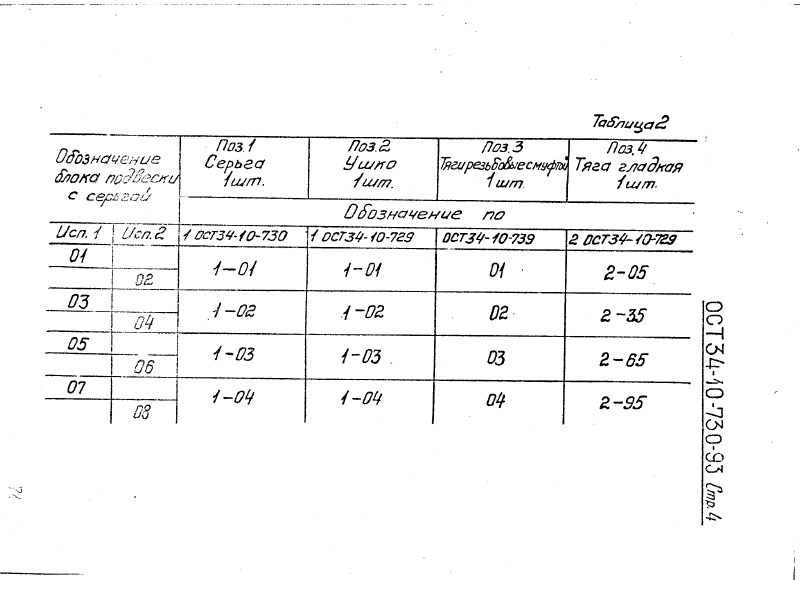 Таблица 2
Обозначение блока подвески с серьгой
Поз.1 Серьга 1шт.
Поз.2 Ушко 1шт.
Поз.3 Тяги резьбовые с муфтой 1шт.
Поз.4 Тяга гладкая 1шт.
Обозначение по
Исп. 1 Исп. 2 1 ОСТ34-10-730 1 ОСТ34-10-729 ОСТ34-10-739 2 ОСТ34-10-729
01
02 1-01 1-01 01 2-05
03
04 1-02 1-02 02 2-35
05
06 1-03 1-03 03 2-65
07
08 1-04 1-04 04 2-95
ОСТ34-10-730-93 Стр.4